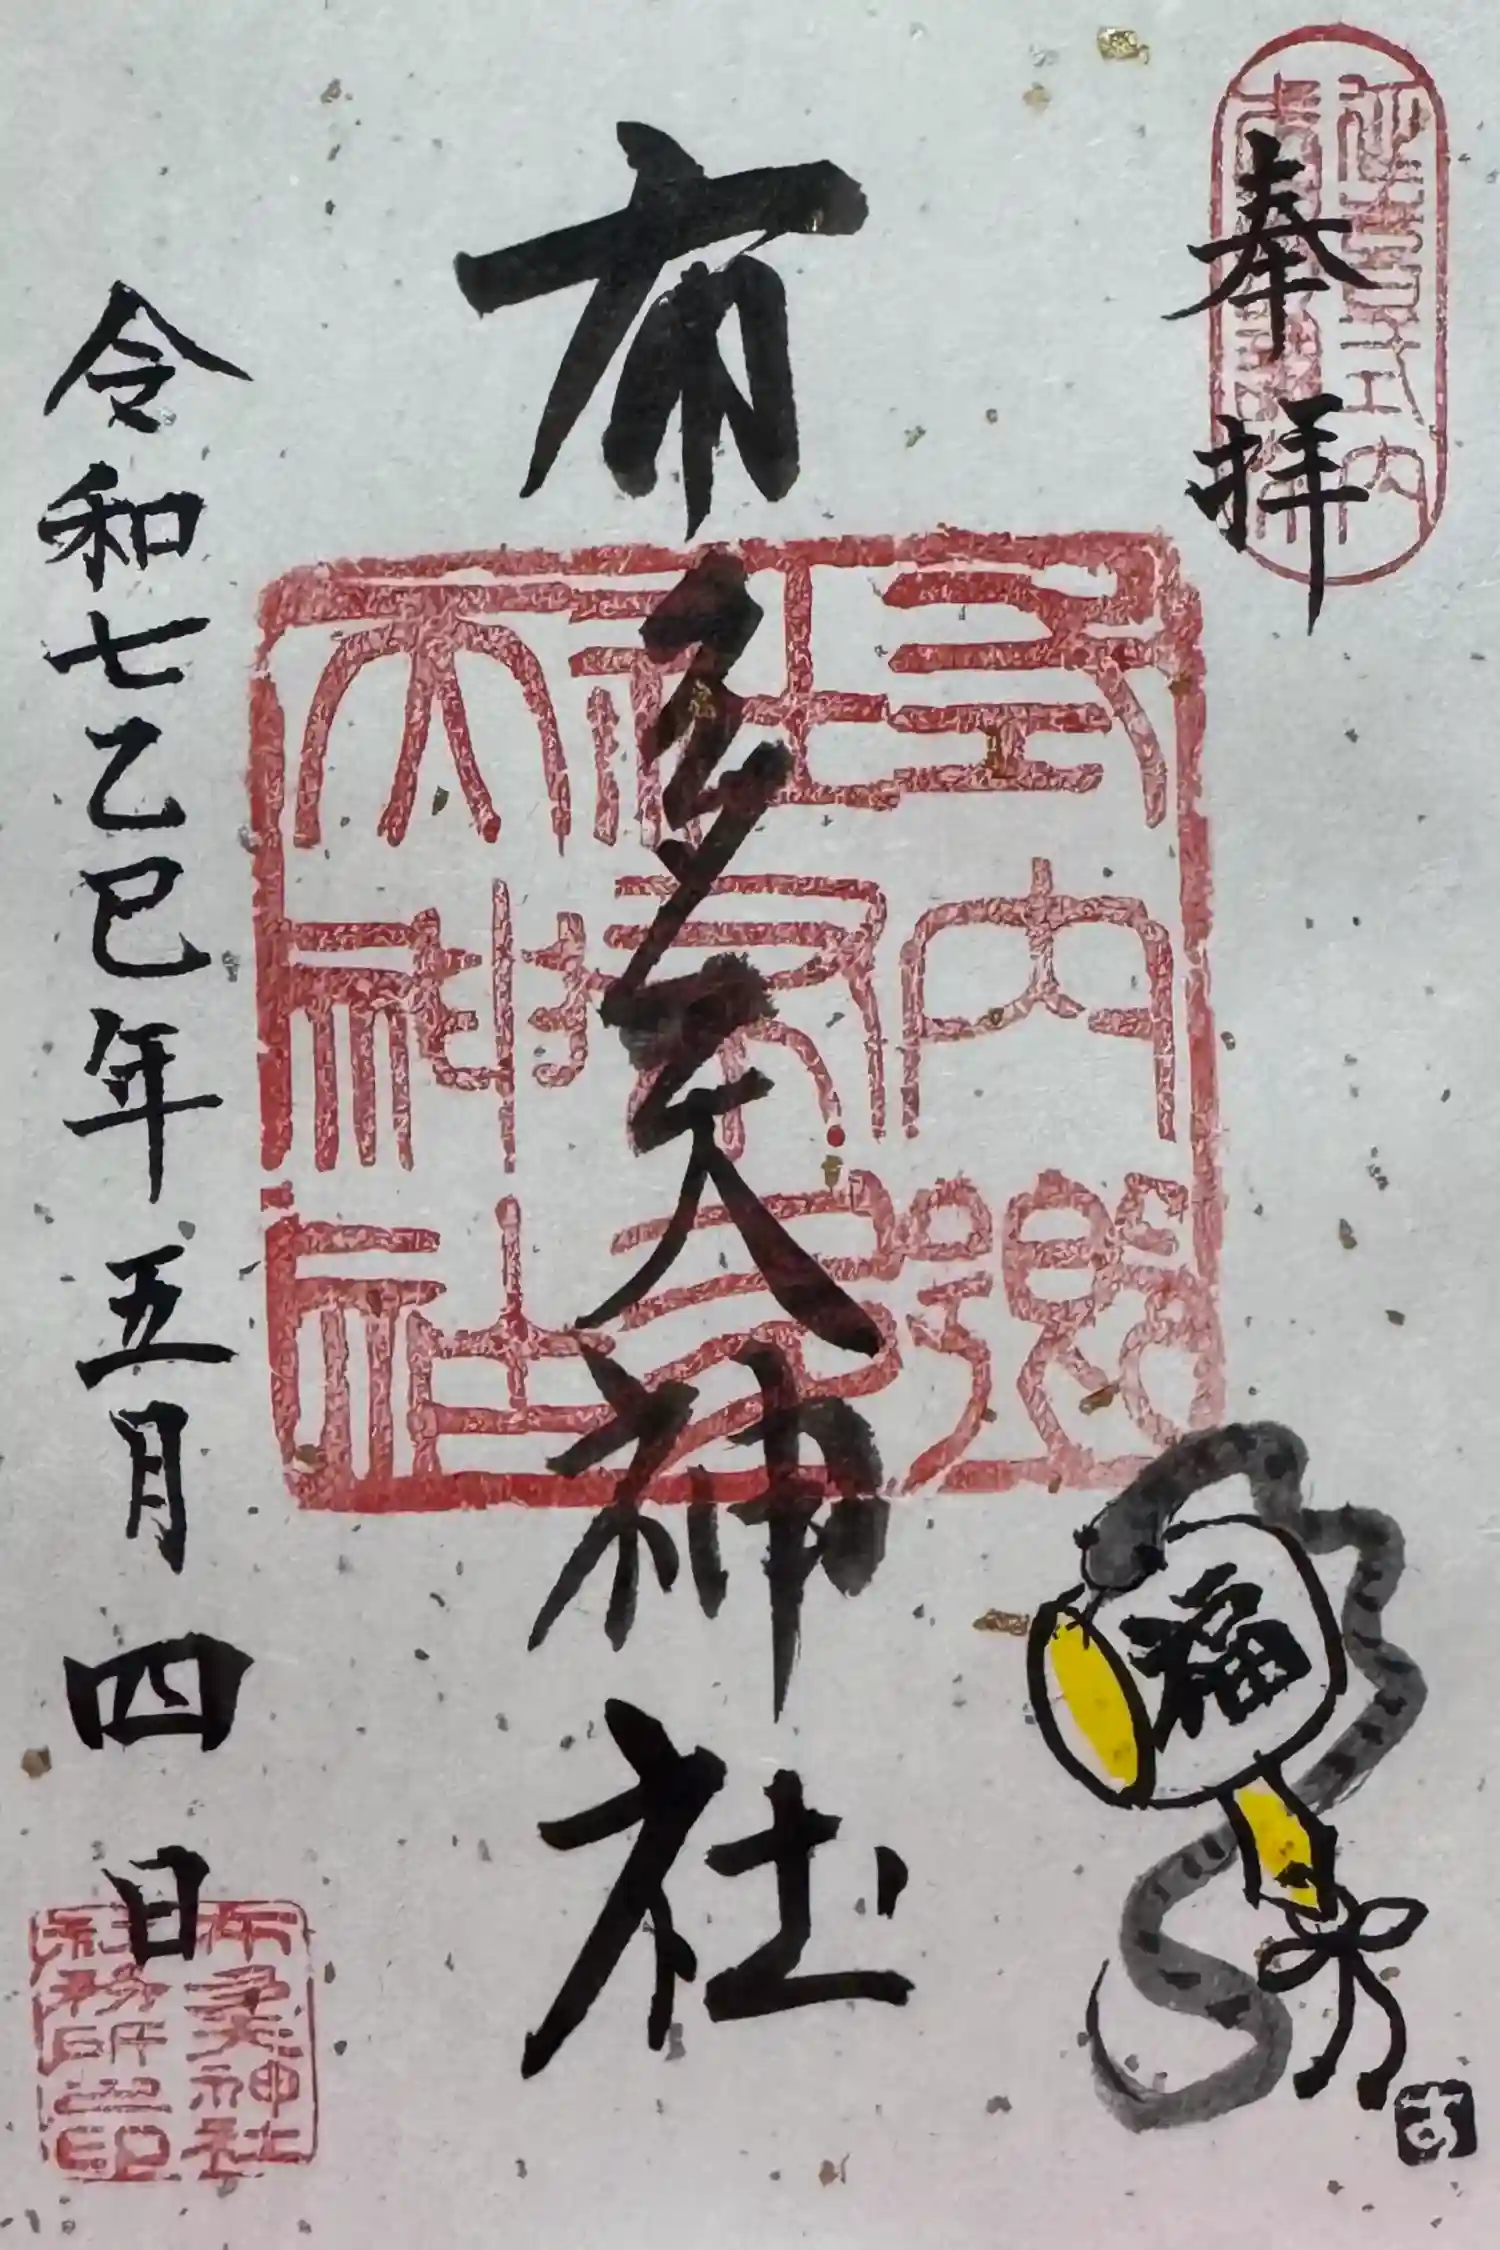 奉拝
延喜式内
布多天神社
式内郷
社布多
天神社
福
令和七乙巳年五月四日
布多天神社
社務所之印